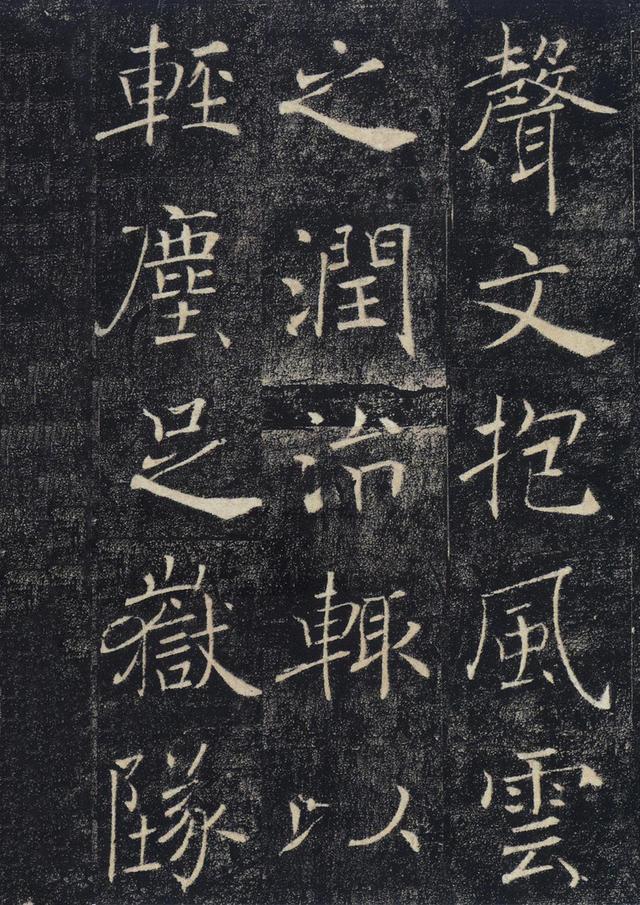 聲文抱風雲
之潤治輒以
輕塵足嶽墜